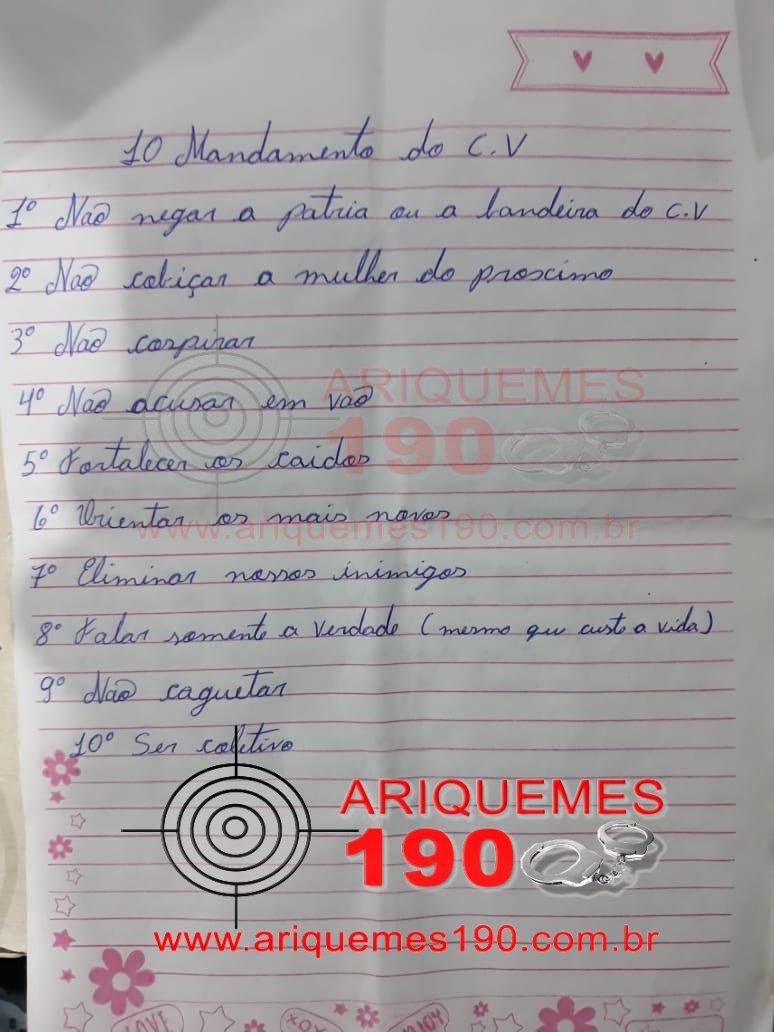 10 Mandamento do C.V
1º Não negar a patria ou a bandeira do C.V
2º Não cobiçar a mulher do proscimo
3º Não conspirar
4º Não acusar em vão
ARIQUEMES
190
5º Fortalecer os caidos
6º Orientar os mais novos
www.ariquemes190.com.br
7º Eliminar nossos inimigos
8º Falar somente a verdade (mesmo que custe a vida)
9º Não caguetar
10º Ser coletivo
ARIQUEMES
190
www.ariquemes190.com.br
LOVE
XOX